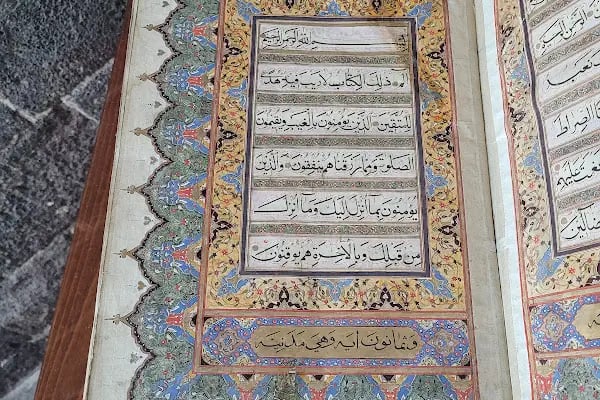 نعبد
الصراط
عليهم
بِسْمِ اللهِ الرَّحْمٰنِ الرَّحِيمِ
الم ذٰلِكَ الْكِتَابُ لَا رَيْبَ فِيهِ هُدًى
لِلْمُتَّقِينَ الَّذِينَ يُؤْمِنُونَ بِالْغَيْبِ وَيُقِيمُونَ
الصَّلٰوةَ وَمِمَّا رَزَقْنَاهُمْ يُنْفِقُونَ وَالَّذِينَ
يُؤْمِنُونَ بِمَا أُنْزِلَ إِلَيْكَ وَمَا أُنْزِلَ
مِنْ قَبْلِكَ وَبِالْآخِرَةِ هُمْ يُوقِنُونَ
وثمانون ايه وهي مدنيه